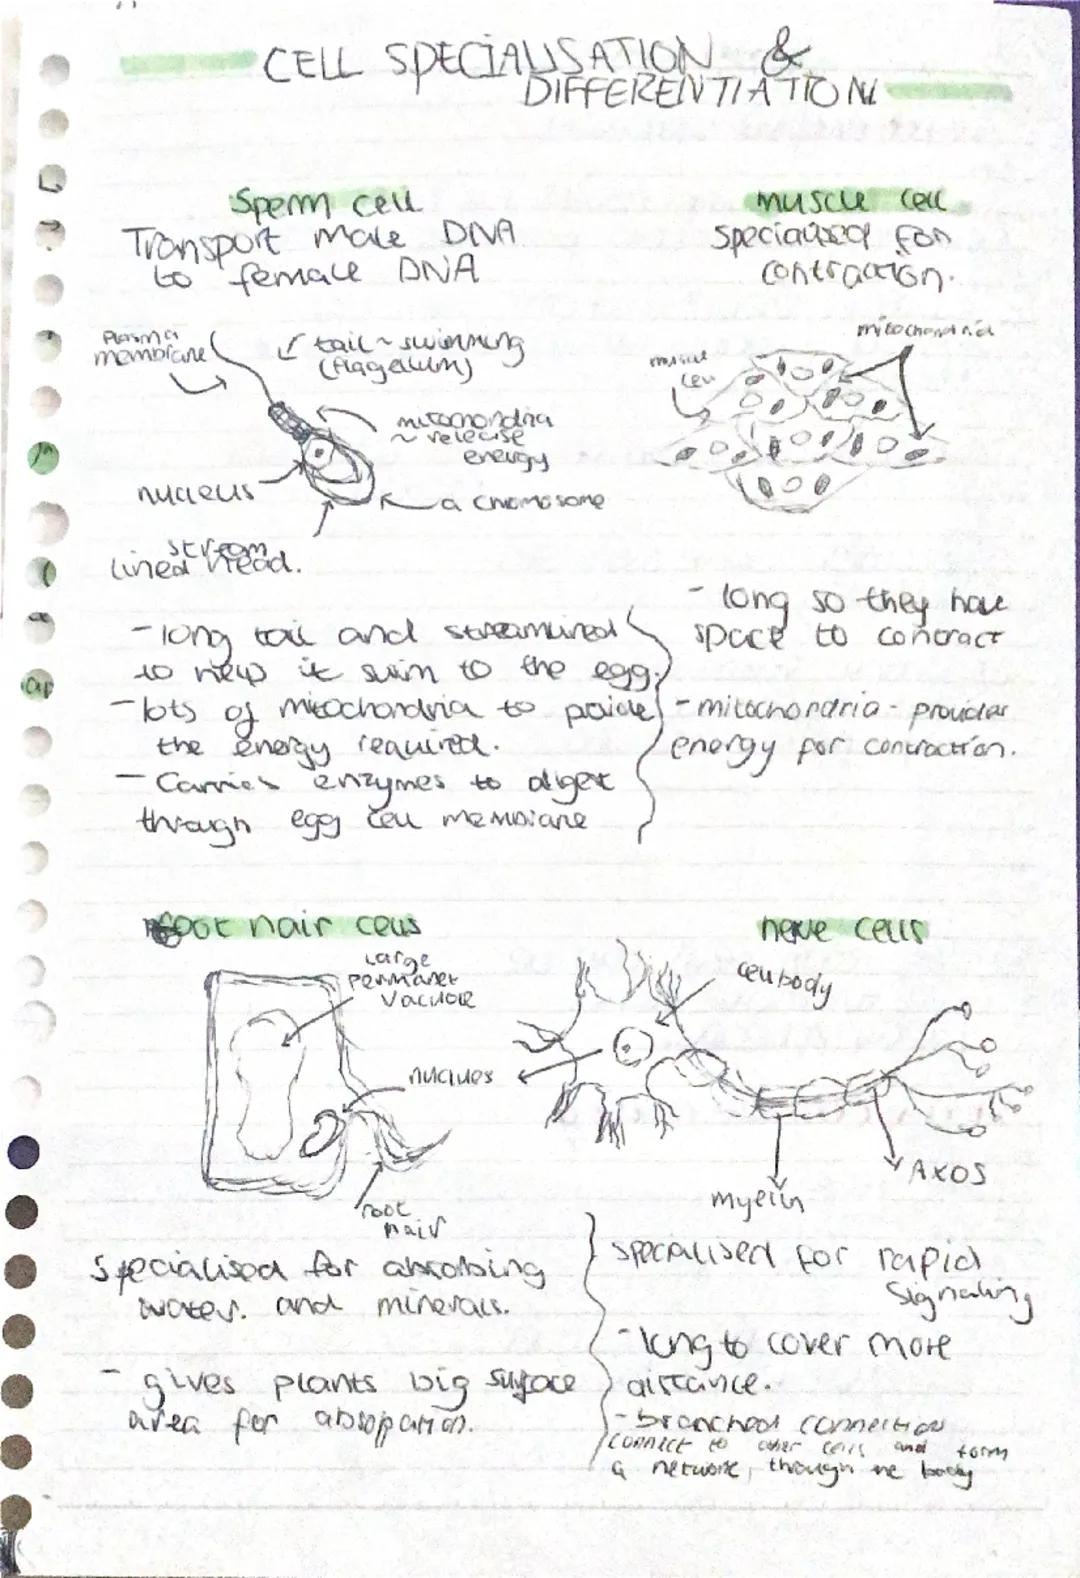 CELL SPECIALISATION &
DIFFERENTIATION
Sperm cell
Transport male DNA
to female DNA
Plasma
membrane
tail ~ swimming
(flagellum)
mitochondria
~ release
energy
nucleus
a chromosome
stream
lined head.
- long tail and streamlined
to help it swim to the egg.
- lots of mitochondria to provide
the energy required.
- Carries enzymes to digest
through egg cell membrane
muscle cell
specialised for
contraction.
mitochondria
muscle
cell
- long so they have
space to contract
- mitochondria - provides
energy for contraction.
root hair cells
Large
permanet
vacuole
nuclues
root
hair
Specialised for absorbing
water. and minerals.
- gives plants big surface
area for absorpation.
nerve cells
cell body
myelin
AXOS
specialised for rapid
Signaling
- long to cover more
distance.
- branched connection
connect to other cells and form
a network, through the body